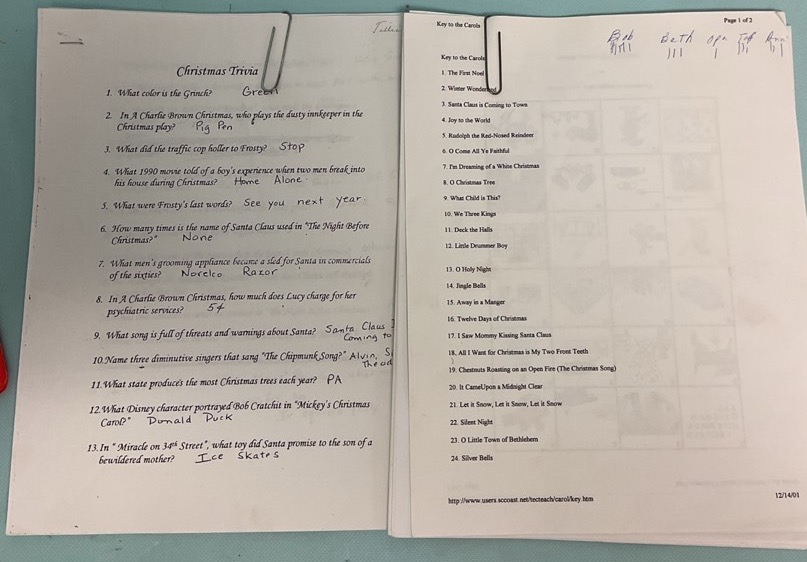 Christmas Trivia
1. What color is the Grinch? Green
2. In A Charlie Brown Christmas, who plays the dusty innkeeper in the
Christmas play? Pig Pen
3. What did the traffic cop holler to Frosty? Stop
4. What 1990 movie told of a boy's experience when two men break into
his house during Christmas? Home Alone
5. What were Frosty's last words? See you next year
6. How many times is the name of Santa Claus used in "The Night Before
Christmas?" None
7. What men's grooming appliance became a sled for Santa in commercials
of the sixties? Norelco Razor
8. In A Charlie Brown Christmas, how much does Lucy charge for her
psychiatric services? 5¢
9. What song is full of threats and warnings about Santa? Santa Claus
Coming to
10. Name three diminutive singers that sang "The Chipmunk Song?" Alvin, S
Theod
11. What state produces the most Christmas trees each year? PA
12. What Disney character portrayed Bob Cratchit in "Mickey's Christmas
Carol?" Donald Duck
13. In "Miracle on 34th Street", what toy did Santa promise to the son of a
bewildered mother? Ice Skates
Key to the Carols
Page 1 of 2
Bob Beth Jeff Ann
Key to the Carols
1. The First Noel
2. Winter Wonderland
3. Santa Claus is Coming to Town
4. Joy to the World
5. Rudolph the Red-Nosed Reindeer
6. O Come All Ye Faithful
7. I'm Dreaming of a White Christmas
8. O Christmas Tree
9. What Child is This?
10. We Three Kings
11. Deck the Halls
12. Little Drummer Boy
13. O Holy Night
14. Jingle Bells
15. Away in a Manger
16. Twelve Days of Christmas
17. I Saw Mommy Kissing Santa Claus
18. All I Want for Christmas is My Two Front Teeth
19. Chestnuts Roasting on an Open Fire (The Christmas Song)
20. It CameUpon a Midnight Clear
21. Let it Snow, Let it Snow, Let it Snow
22. Silent Night
23. O Little Town of Bethlehem
24. Silver Bells
http://www.users.sccoast.net/tecteach/carol/key.htm
12/14/01